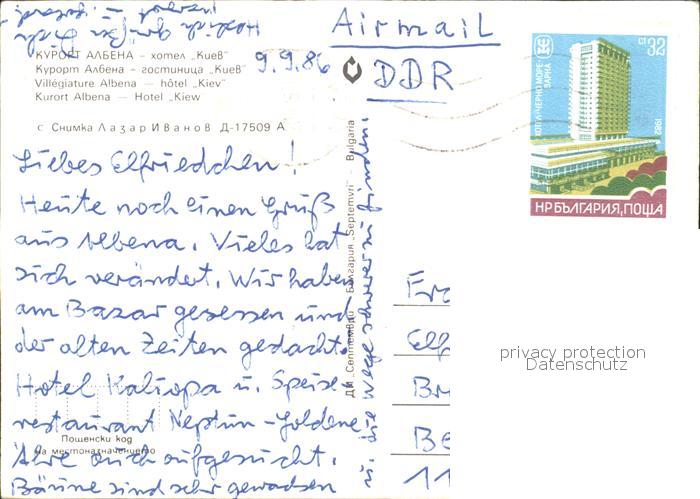 Airmail
DDR
КУРОРТ АЛБЕНА – хотел „Киев"
Курорт Албена – гостиница „Киев"
Villégiature Albena — hôtel „Kiev"
Kurort Albena — Hotel „Kiew
9.9.86
с Снимка Лазар Иванов Д-17509 А
Liebes Elfriedchen!
Heute noch einen Gruß
aus Albena. Vieles hat
sich verändert. Wir haben
am Bazar gesessen und
der alten Zeiten gedacht.
Hotel Kaliopa u. Speise-
restaurant Neptun – Goldene
Ähre auch aufgesucht.
Bäume sind sehr gewachsen
u. die Wege schwerer zu finden.
Herzlich grüßen Dich
Пощенски код
на местоназначението
ДИ „Септември" България „Septemvri" - Bulgaria
ст 32
ХОТЕЛ „ЧЕРНО МОРЕ"
ВАРНА
1982
НР БЪЛГАРИЯ, ПОЩА
Fra
Elf
Br
Be
11
privacy protection
Datenschutz